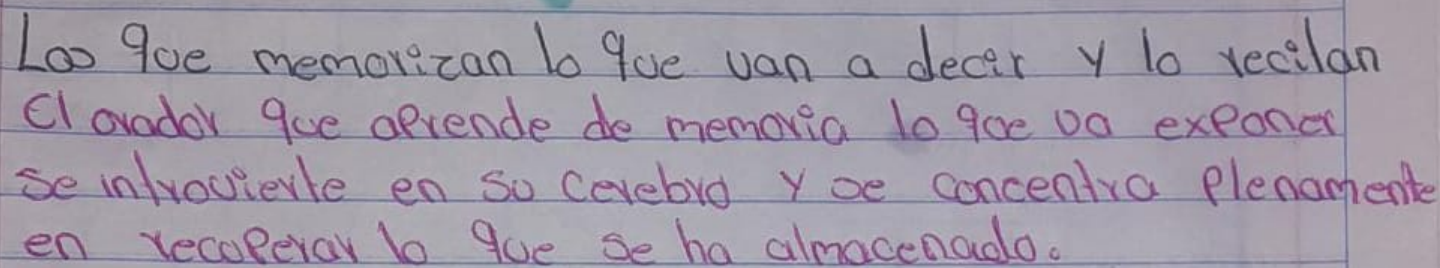 Los que memorizan lo que van a decir y lo recitan
El orador que aprende de memoria lo que va exponer
se introvierte en su cerebro y se concentra plenamente
en recuperar lo que se ha almacenado.